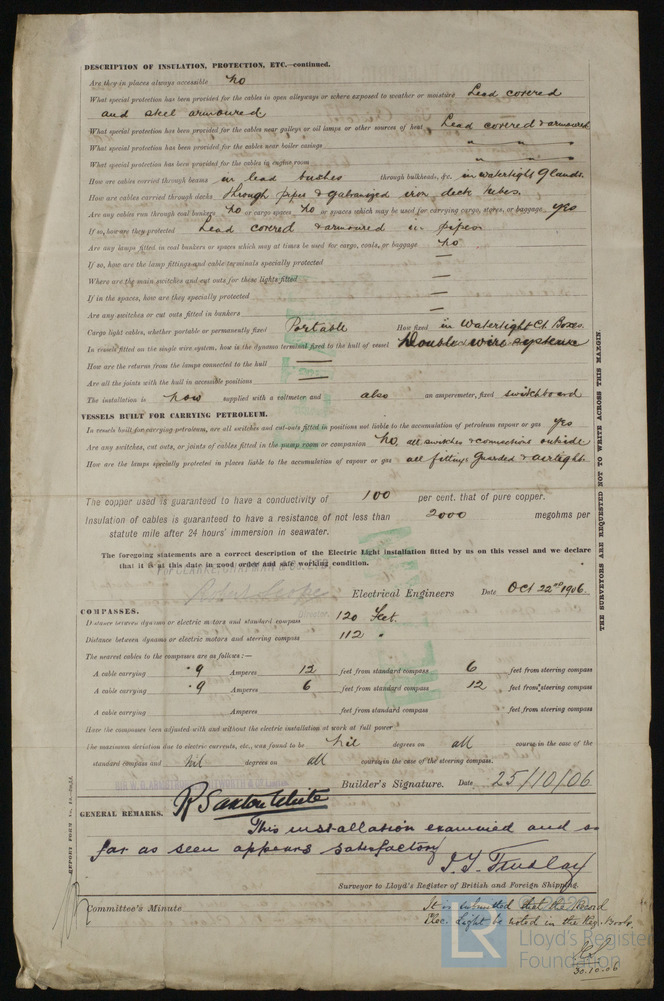 DESCRIPTION OF INSULATION, PROTECTION, ETC.—continued.
Are they in places always accessible no
What special protection has been provided for the cables in open alleyways or where exposed to weather or moisture Lead covered
and steel armoured
What special protection has been provided for the cables near galleys or oil lamps or other sources of heat Lead covered & armoured
What special protection has been provided for the cables near boiler casings " "
What special protection has been provided for the cables in engine room " "
How are cables carried through beams in lead bushes through bulkheads, &c. in watertight glands.
How are cables carried through decks through pipes & galvanized iron deck tubes.
Are any cables run through coal bunkers no or cargo spaces no or spaces which may be used for carrying cargo, stores, or baggage yes
If so, how are they protected Lead covered & armoured in pipes
Are any lamps fitted in coal bunkers or spaces which may at times be used for cargo, coals, or baggage no
If so, how are the lamp fittings and cable terminals specially protected —
Where are the main switches and cut outs for these lights fitted —
If in the spaces, how are they specially protected —
Are any switches or cut outs fitted in bunkers —
Cargo light cables, whether portable or permanently fixed Portable How fixed in watertight Ct. Boxes.
In vessels fitted on the single wire system, how is the dynamo terminal fixed to the hull of vessel Double wire system
How are the returns from the lamps connected to the hull —
Are all the joints with the hull in accessible positions —
The installation is now supplied with a voltmeter and also an amperemeter, fixed switchboard
VESSELS BUILT FOR CARRYING PETROLEUM.
In vessels built for carrying petroleum, are all switches and cut-outs fitted in positions not liable to the accumulation of petroleum vapour or gas yes
Are any switches, cut outs, or joints of cables fitted in the pump room or companion no, all switches & connections outside
How are the lamps specially protected in places liable to the accumulation of vapour or gas all fittings guarded & airtight.
The copper used is guaranteed to have a conductivity of 100 per cent. that of pure copper.
Insulation of cables is guaranteed to have a resistance of not less than 2000 megohms per
statute mile after 24 hours' immersion in seawater.
The foregoing statements are a correct description of the Electric Light installation fitted by us on this vessel and we declare
that it is at this date in good order and safe working condition.
FOR CLARKE, CHAPMAN & CO. LTD.
Electrical Engineers Date Oct 22nd 1906.
Director.
COMPASSES.
Distance between dynamo or electric motors and standard compass 120 feet.
Distance between dynamo or electric motors and steering compass 112 "
The nearest cables to the compasses are as follows:—
A cable carrying .9 Amperes 12 feet from standard compass 6 feet from steering compass
A cable carrying .9 Amperes 6 feet from standard compass 12 feet from steering compass
A cable carrying Amperes feet from standard compass feet from steering compass
Have the compasses been adjusted with and without the electric installation at work at full power
The maximum deviation due to electric currents, etc., was found to be nil degrees on all course in the case of the
standard compass and nil degrees on all course in the case of the steering compass.
SIR W. G. ARMSTRONG, WHITWORTH & CO. LTD.
R Saxton White Builder's Signature. Date 25/10/06
GENERAL REMARKS.
This installation examined and so
far as seen appears satisfactory
J. T. Findlay
Surveyor to Lloyd's Register of British and Foreign Shipping.
Committee's Minute
It is submitted that the Record
Elec. Light be noted in the Reg. Book
30.10.06
THE SURVEYORS ARE REQUESTED NOT TO WRITE ACROSS THIS MARGIN.
REPORT FORM
LR
Lloyd's Register
Foundation